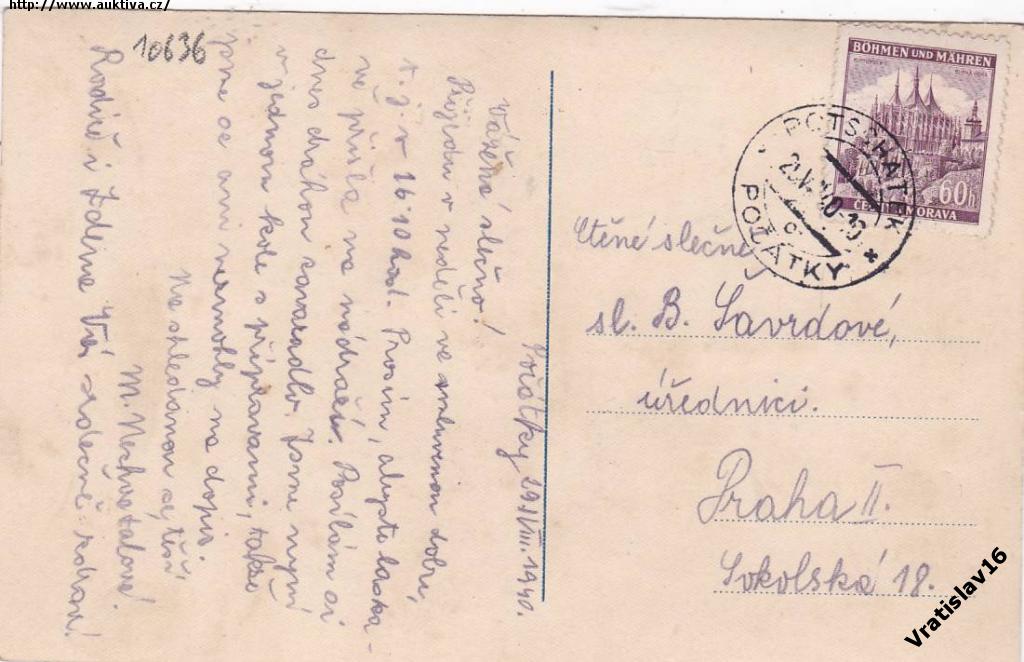 http://www.auktiva.cz/
10636
Počátky 29./VIII. 1940.
Vážená slečno!
Přijedu v neděli ve smluvenou dobu,
t. j. v 16·10 hod. Prosím, abyste laska-
vě přišla na nádraží. Posílám si
dnes drahou zavazadlo. Jsme nyní
v jednom kole s přípravami, takže
jsme se ani nezmohly na dopis.
Na shledanou se těší
M. Nechvátalová.
Rodiče i Zdena Vás srdečně zdraví!
BÖHMEN UND MÄHREN
60h
ČECHY A MORAVA
POTSCHATEK
POČÁTKY
Ctěné slečně
sl. B. Šavrdové,
úřednici.
Praha II.
Sokolská 18.
Vratislav16